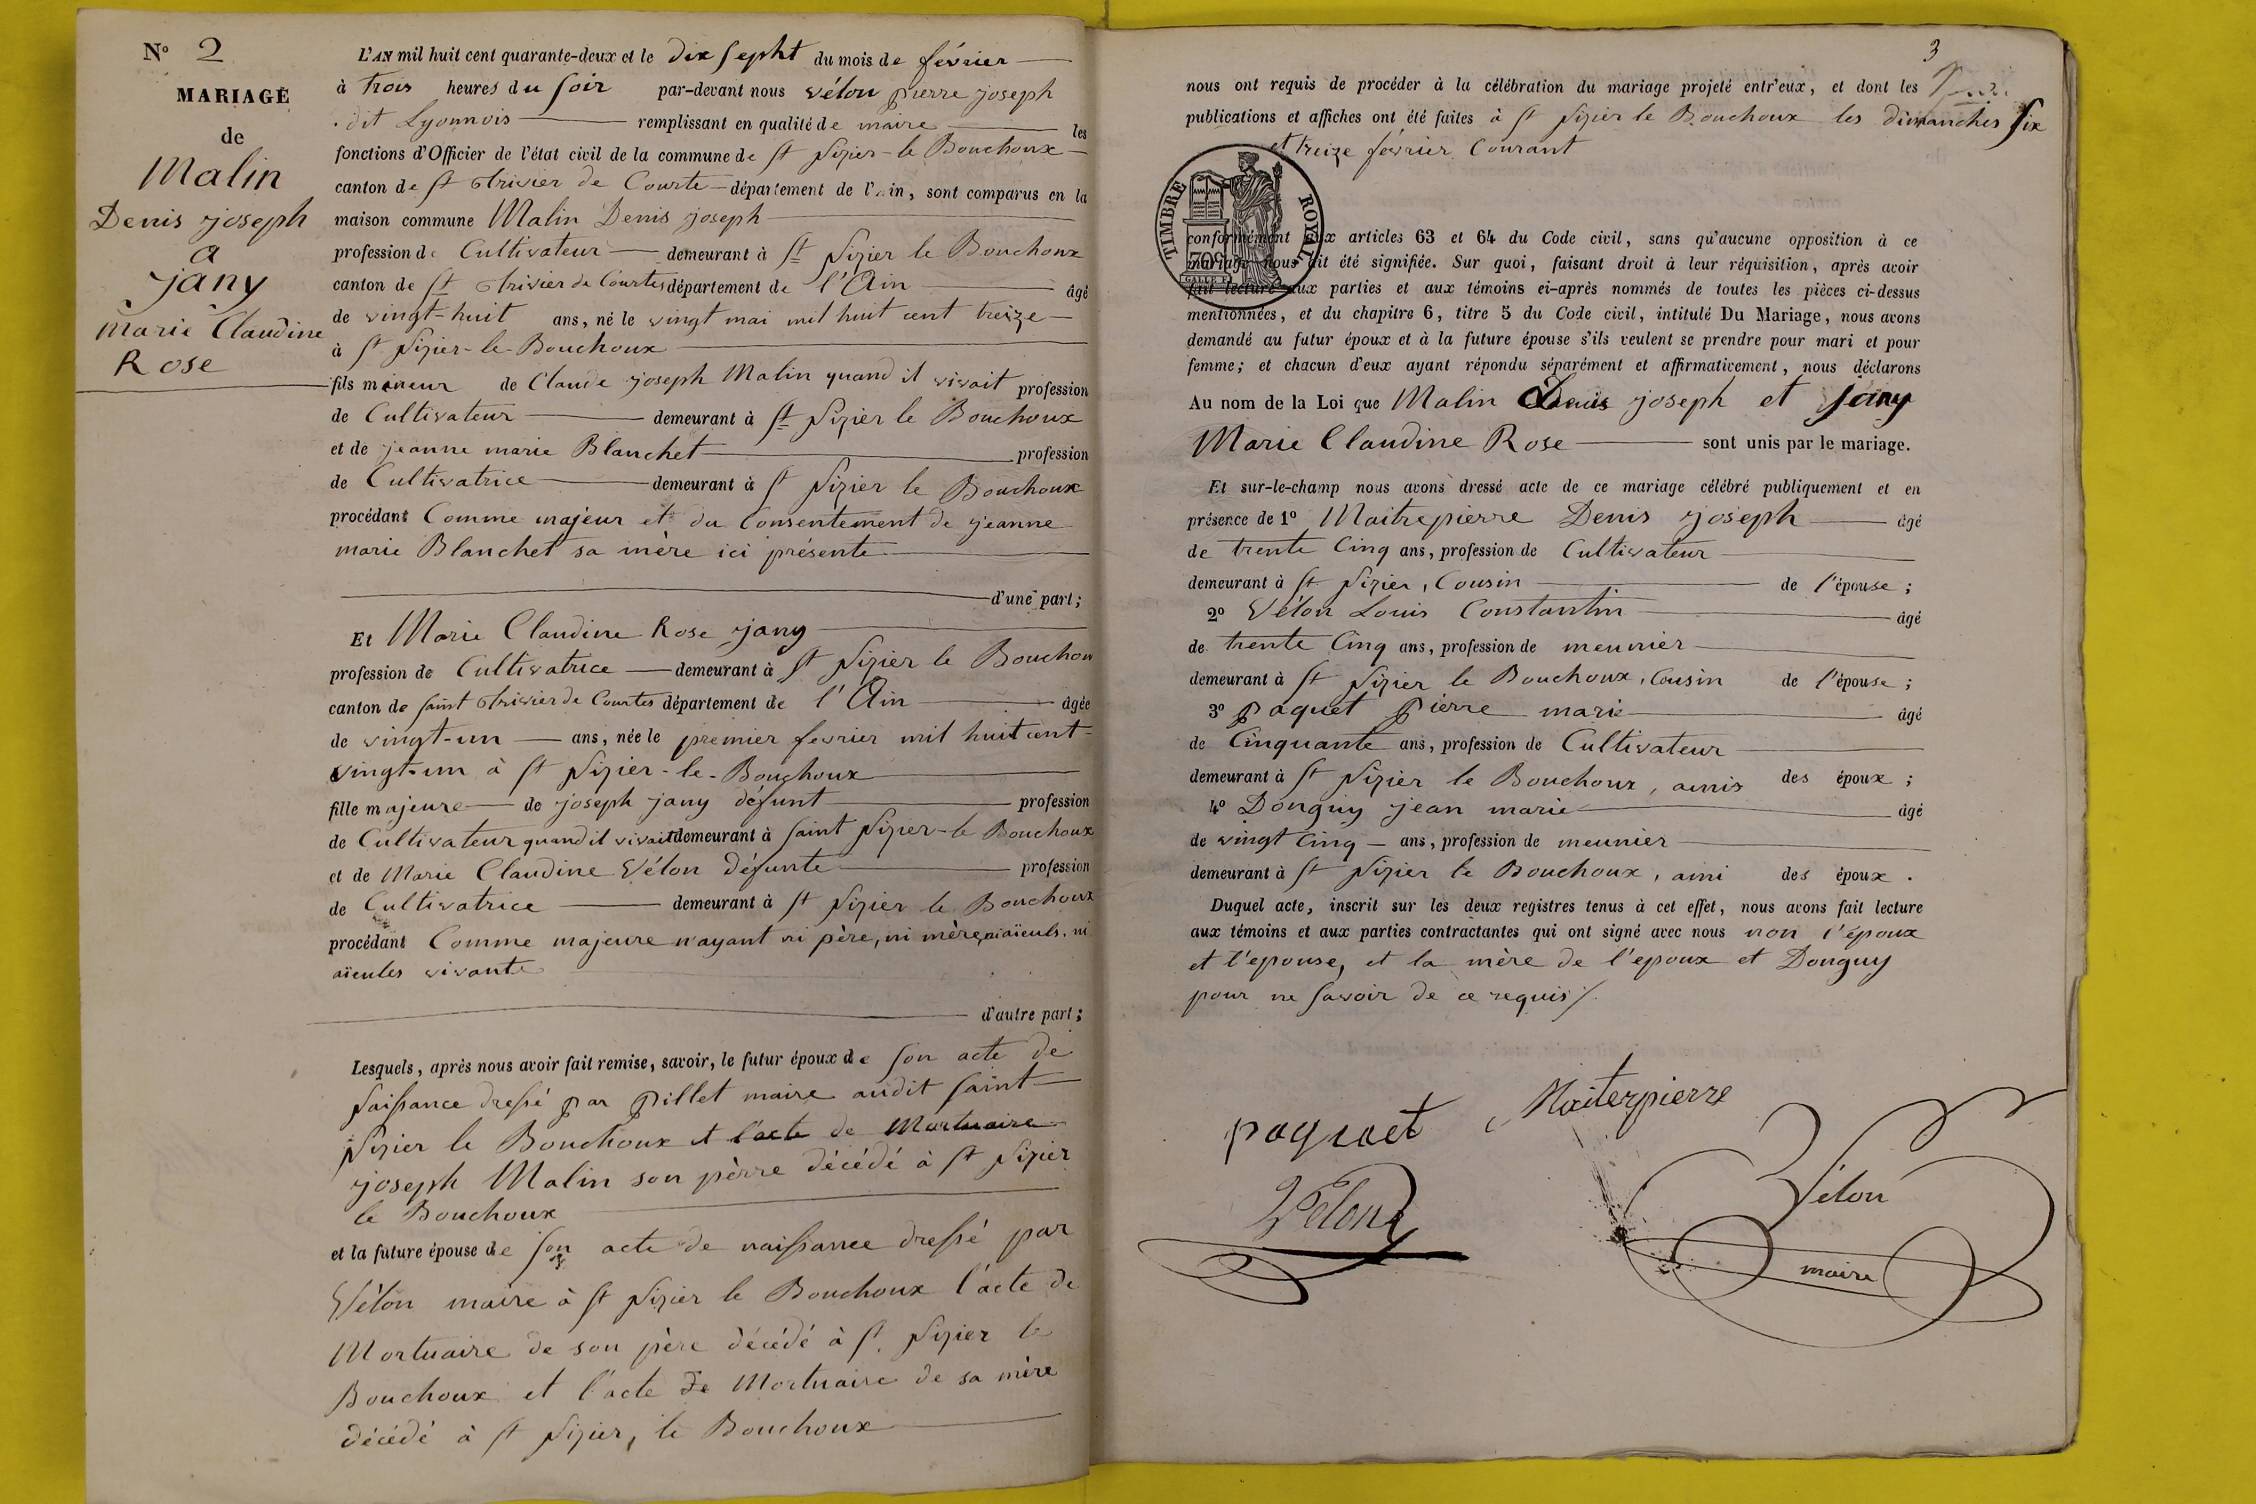 N° 2
MARIAGE
de
Malin
Denis joseph
a
jany
Marie Claudine
Rose
L'AN mil huit cent quarante-deux et le dix sepht du mois de février
à trois heures du soir par-devant nous vélon pierre joseph
dit Lyonnois remplissant en qualité de maire les
fonctions d'Officier de l'état civil de la commune de St Nizier-le-Bouchoux
canton de St Trivier de Courte département de l'Ain, sont comparus en la
maison commune Malin Denis joseph
profession de Cultivateur demeurant à St Nizier le Bouchoux
canton de St Trivier de Courtes département de l'Ain âgé
de vingt-huit ans, né le vingt mai mil huit cent treize
à St Nizier-le-Bouchoux
fils mineur de Claude joseph Malin quand il vivait profession
de Cultivateur demeurant à St Nizier le Bouchoux
et de jeanne marie Blanchet profession
de Cultivatrice demeurant à St Nizier le Bouchoux
procédant Comme majeur et du Consentement de jeanne
marie Blanchet sa mère ici présente
d'une part;
Et Marie Claudine Rose jany
profession de Cultivatrice demeurant à St Nizier le Bouchou
canton de saint Trivier de Courtes département de l'Ain âgée
de vingt-un ans, née le premier fevrier mil huit cent
vingt-un à St Nizier-le-Bouchoux
fille majeure de joseph jany défunt profession
de Cultivateur quand il vivait demeurant à saint Nizier-le Bouchoux
et de Marie Claudine Vélon défunte profession
de Cultivatrice demeurant à St Nizier le Bouchoux
procédant Comme majeure n'ayant ni père, ni mère, ni aïeuls, ni
aïeules vivante
d'autre part;
Lesquels, après nous avoir fait remise, savoir, le futur époux de son acte de
Naissance dressé par Pillet maire audit saint
Nizier le Bouchoux et l'acte de Mortuaire
joseph Malin son pèrre décédé à St Nizier
le Bouchoux
et la future épouse de son acte de naissance dressé par
Vélon maire à St Nizier le Bouchoux l'acte de
Mortuaire de son père décédé à St. Nizier le
Bouchoux et l'acte de Mortuaire de sa mère
décédé à St Nizier, le Bouchoux
3
nous ont requis de procéder à la célébration du mariage projeté entr'eux, et dont les
publications et affiches ont été faites à St Nizier le Bouchoux les dimanches six
et treize février Courant
TIMBRE ROYAL
conformément aux articles 63 et 64 du Code civil, sans qu'aucune opposition à ce
mariage nous ait été signifiée. Sur quoi, faisant droit à leur réquisition, après avoir
fait lecture aux parties et aux témoins ci-après nommés de toutes les pièces ci-dessus
mentionnées, et du chapitre 6, titre 5 du Code civil, intitulé Du Mariage, nous avons
demandé au futur époux et à la future épouse s'ils veulent se prendre pour mari et pour
femme; et chacun d'eux ayant répondu séparément et affirmativement, nous déclarons
Au nom de la Loi que Malin Denis joseph et Jany
Marie Claudine Rose sont unis par le mariage.
Et sur-le-champ nous avons dressé acte de ce mariage célébré publiquement et en
présence de 1° Maitrepierre Denis joseph âgé
de trente Cinq ans, profession de Cultivateur
demeurant à St Nizier, Cousin de l'épouse;
2° Vélon Louis Constantin âgé
de trente Cinq ans, profession de meunier
demeurant à St Nizier le Bouchoux, Cousin de l'épouse;
3° paquet Pierre marie âgé
de Cinquante ans, profession de Cultivateur
demeurant à St Nizier le Bouchoux, amis des époux;
4° Donguy jean marie âgé
de vingt Cinq ans, profession de meunier
demeurant à St Nizier le Bouchoux, ami des époux.
Duquel acte, inscrit sur les deux registres tenus à cet effet, nous avons fait lecture
aux témoins et aux parties contractantes qui ont signé avec nous non l'époux
et l'epouse, et la mère de l'epoux et Donguy
pour ne savoir de ce requis/.
paquet Maiterpierre
Velon Vélon
maire